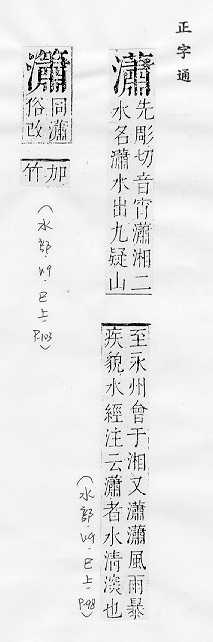 正字通
瀟
先彫切音宵瀟湘二
水名瀟水出九疑山
至永州會于湘又瀟瀟風雨暴
疾貌水經注云瀟者水清深也
(水部.V9.巳上.P.98)
同瀟
俗改
加
竹
(水部.V9.巳上.P.103)